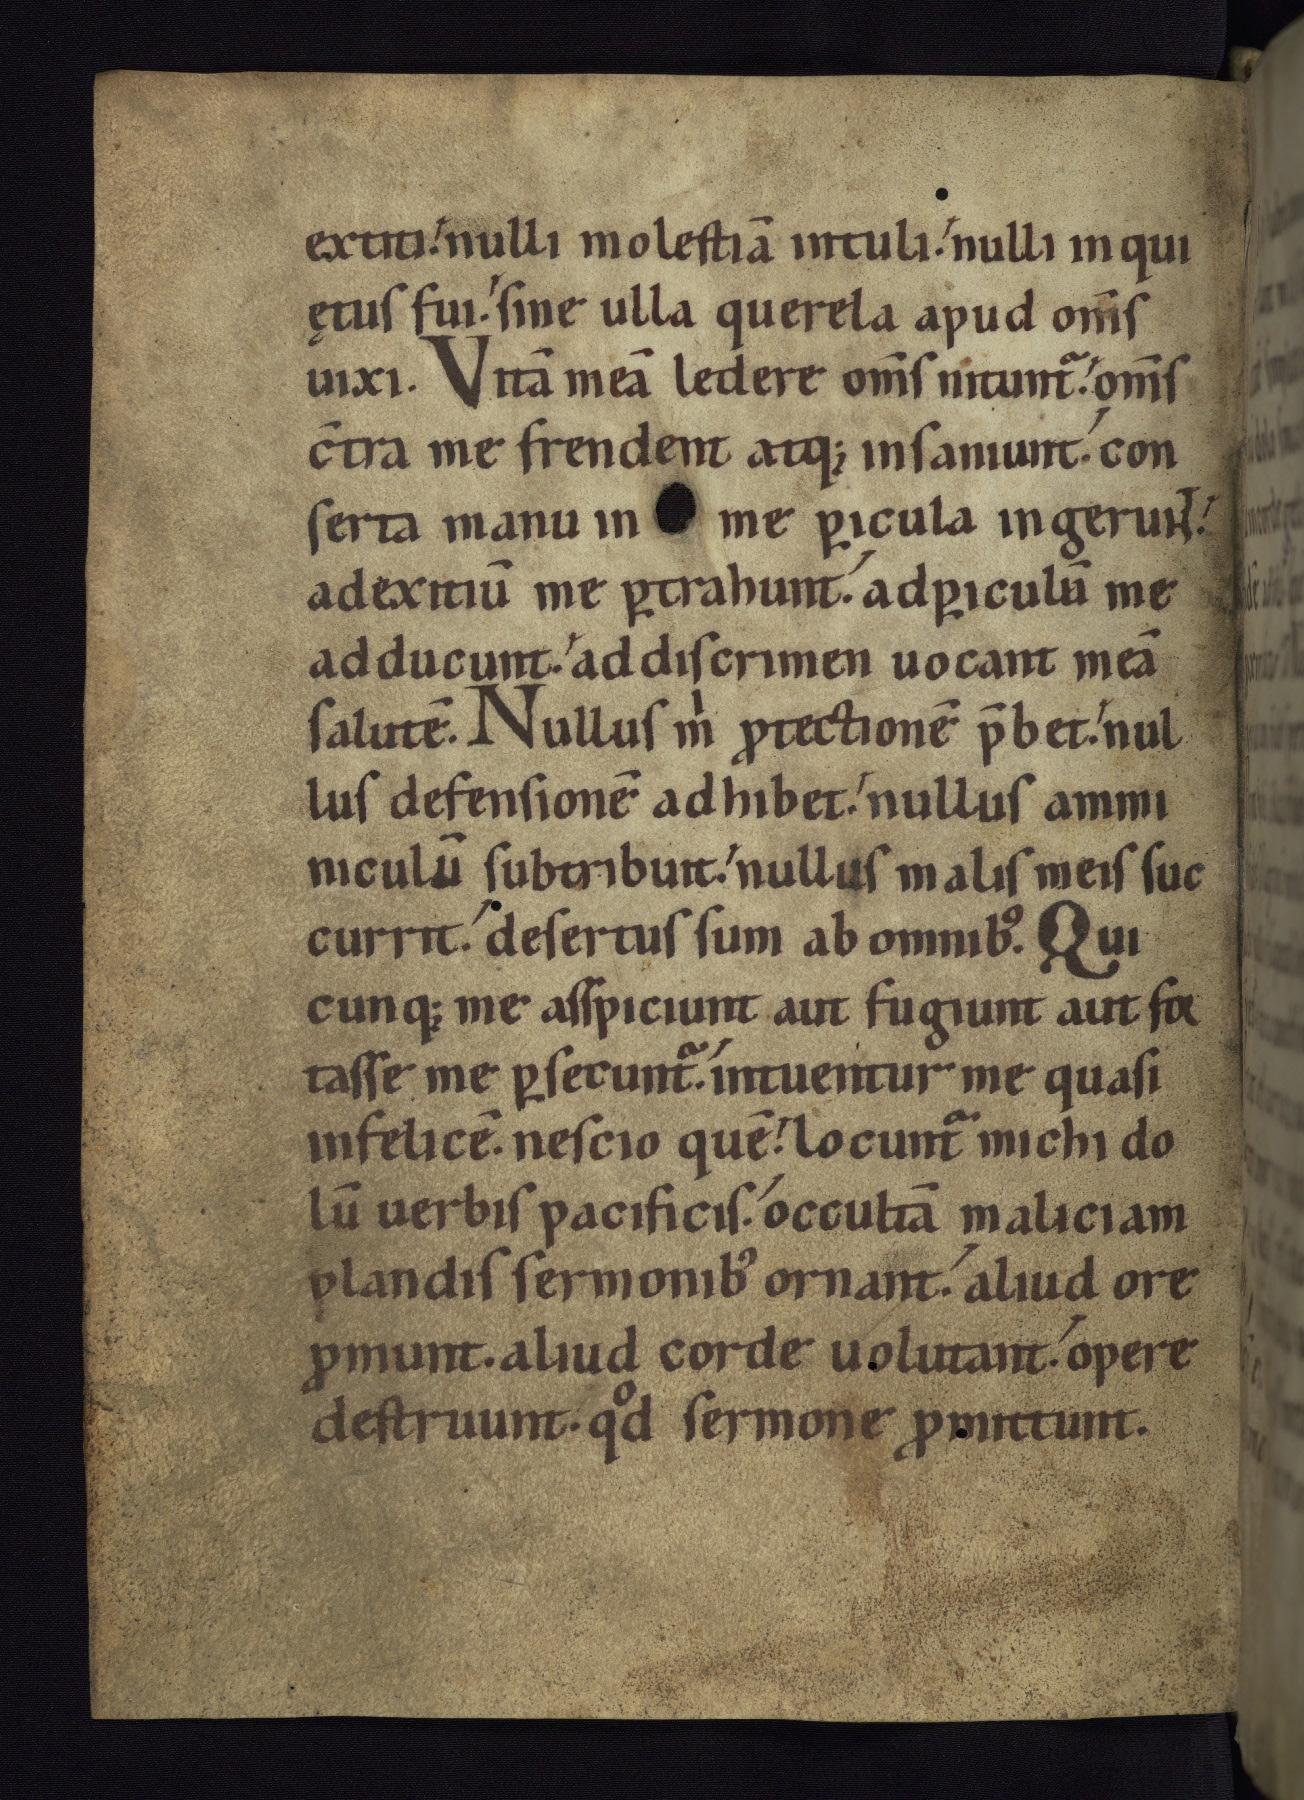 extiti. nulli molestiā intuli. nulli inqui
ętus fui. sine ulla querela apud om̄s
uixi. Vitā meā ledere om̄s nitunt᷑. om̄s
c̄tra me frendent atq; insaniunt. con
serta manu in me ꝑicula ingerunt.
adexitiū me ꝑtrahunt. adꝑiculū me
adducunt. addiscrimen uocant meā
salutē. Nullus m̍ ꝓtectionē p̄bet. nul
lus defensionē adhibet. nullus ammi
niculū subtribuit. nullus malis meis suc
currit. desertus sum ab omnibꝰ. Qui
cunq; me asspiciunt aut fugiunt aut for
tasse me ꝑsecunt᷑. intuentur me quasi
infelicē. nescio quē. locunt᷑ michi do
lū uerbis pacificis. occultā maliciam
plandis sermonibꝰ ornant. aliud ore
ꝓmunt. aliud corde uolutant. opere
destruunt. qͦd sermone ꝓmittunt.